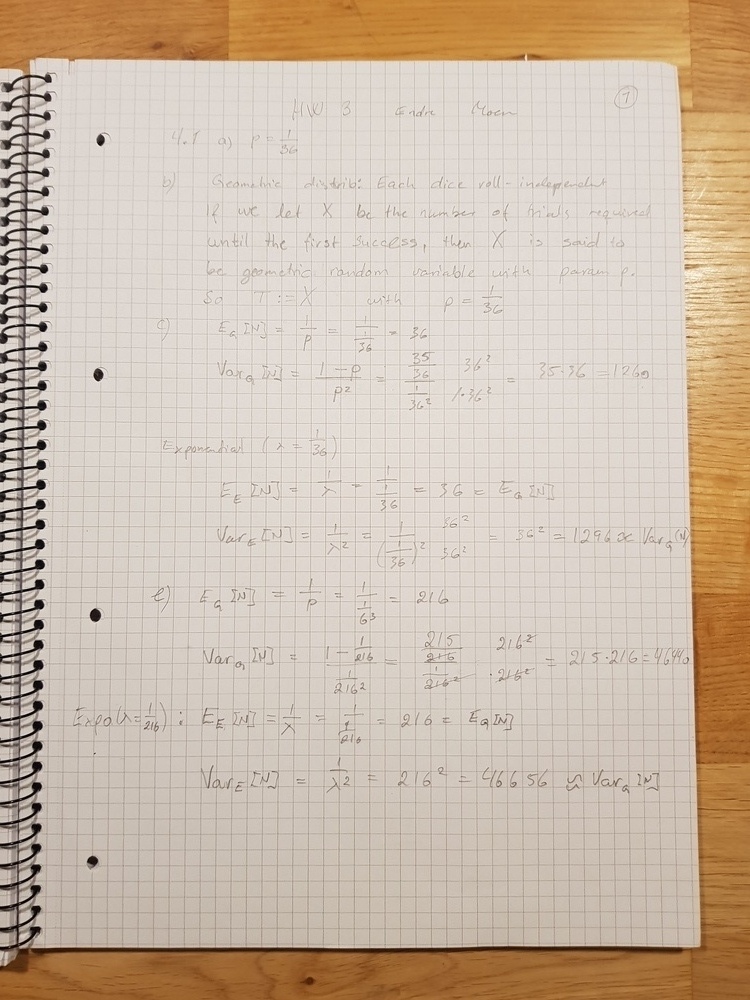 1
HW 3 Endre Moen
4.1 a) p = 1/36
b) Geometric distrib: Each dice roll - independent
If we let X be the number of trials required
until the first success, then X is said to
be geometric random variable with param p.
So T := X with p = 1/36
c) E_G[N] = 1/p = 1/(1/36) = 36
Var_G[N] = (1-p)/p² = (35/36)/(1/36²) 36²/1·36² = 35·36 = 1260
Exponential (λ = 1/36)
E_E[N] = 1/λ = 1/(1/36) = 36 = E_G[N]
Var_E[N] = 1/λ² = 1/(1/36)² 36²/36² = 36² = 1296 ≈ Var_G[N]
e) E_G[N] = 1/p = 1/(1/6³) = 216
Var_G[N] = (1 - 1/216)/(1/216²) = (215/216)/(1/216²) 216²/·216² = 215·216 = 46440
Expo(λ = 1/216) : E_E[N] = 1/λ = 1/(1/216) = 216 = E_G[N]
Var_E[N] = 1/λ² = 216² = 46656 ≈ Var_G[N]